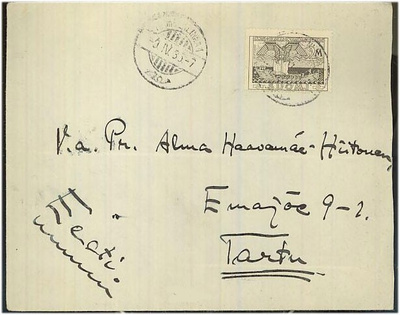 IV.35-7
M
SUOMI
V.a. Pr. Alma Haavamäe-Hiitonen,
Emajõe 9-1.
Tartu
Eesti